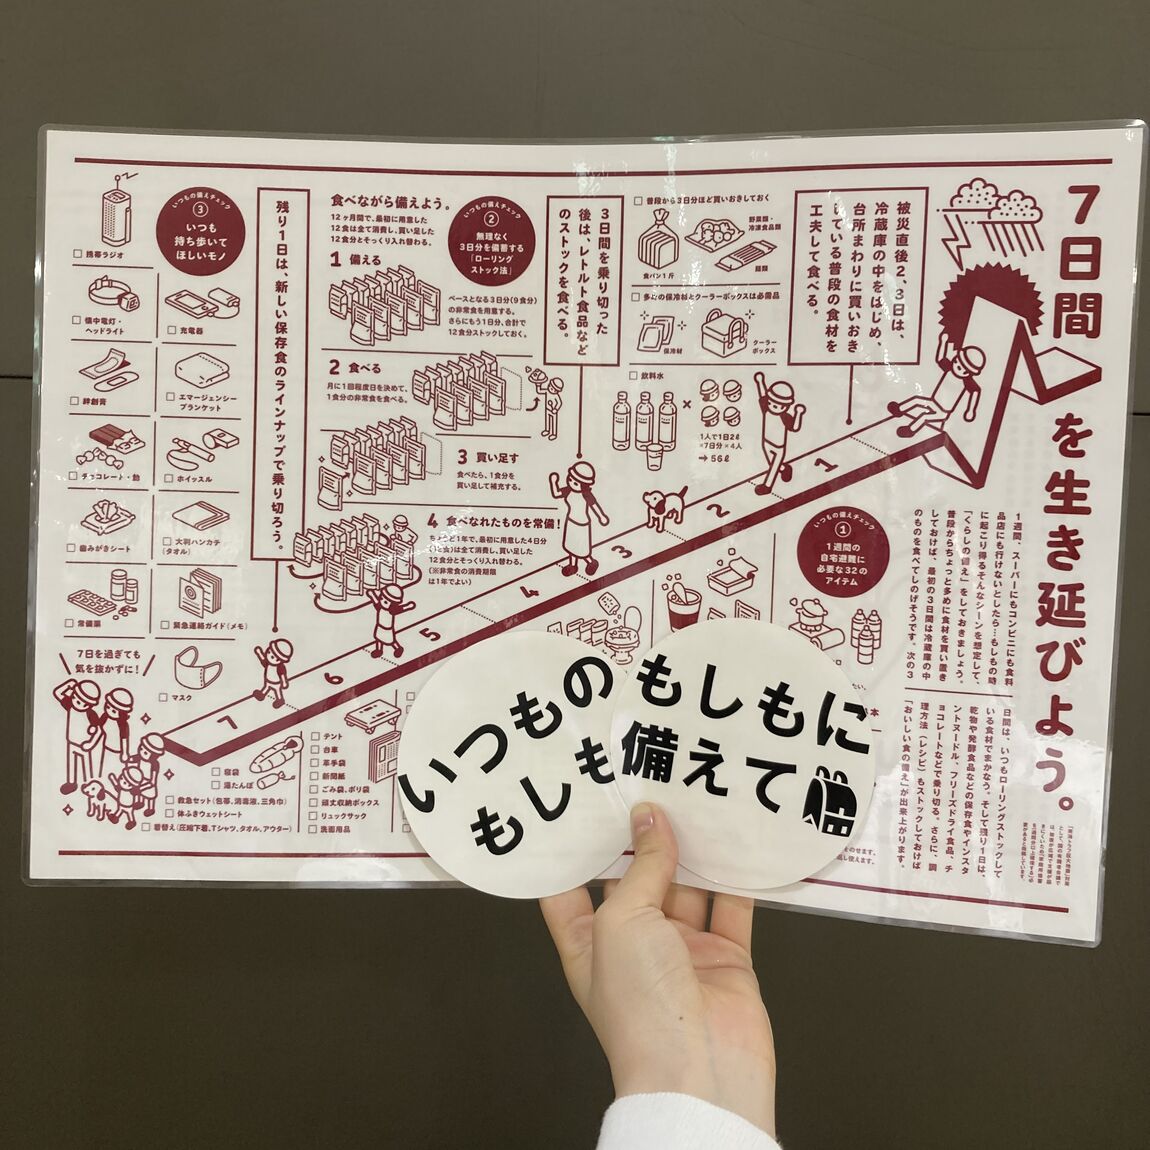 7日間を生き延びよう。
1週間、スーパーにもコンビニにも食料
品店にも行けないとしたら…もしもの時
に起こり得るそんなシーンを想定して、
「くらしの備え」をしておきましょう。
普段からちょっと多めに食材を買い置き
しておけば、最初の3日間は冷蔵庫の中
のものを食べてしのげそうです。次の3
日間は、いつもローリングストックして
いる食材でまかなう。そして残り1日は、
乾物や発酵食品などの保存食やインスタ
ントヌードル、フリーズドライ食品、チ
ョコレートなどで乗り切る。さらに、調
理方法(レシピ)もストックしておけば
「おいしい食の備え」が出来上がります。
被災直後2、3日は、
冷蔵庫の中をはじめ、
台所まわりに買いおき
している普段の食材を
工夫して食べる。
普段から3日分ほど買いおきしておく
食パン1斤
野菜類・
冷凍食品類
麺類
多めの保冷材とクーラーボックスは必備品
保冷材
クーラー
ボックス
飲料水
×
1人で1日2ℓ
×7日分×4人
→56ℓ
いつもの備えチェック
①
1週間の
自宅避難に
必要な32の
アイテム
3日間を乗り切った
後は、レトルト食品など
のストックを食べる。
いつもの備えチェック
②
無理なく
3日分を備蓄する
「ローリング
ストック法」
食べながら備えよう。
12ヶ月間で、最初に用意した
12食は全て消費し、買い足した
12食分とそっくり入れ替わる。
1 備える
ベースとなる3日分(9食分)
の非常食を用意する。
さらにもう1日分、合計で
12食分ストックしておく。
2 食べる
月に1回程度日を決めて、
1食分の非常食を食べる。
3 買い足す
食べたら、1食分を
買い足して補充する。
4 食べなれたものを常備!
ちょうど1年で、最初に用意した4日分
(12食)は全て消費し、買い足した
12食分とそっくり入れ替わる。
(※非常食の消費期限
は1年でよい)
残り1日は、新しい保存食のラインナップで乗り切ろう。
いつもの備えチェック
③
いつも
持ち歩いて
ほしいモノ
携帯ラジオ
懐中電灯・
ヘッドライト
充電器
絆創膏
エマージェンシー
ブランケット
チョコレート・飴
ホイッスル
歯みがきシート
大判ハンカチ
(タオル)
常備薬
緊急連絡ガイド(メモ)
マスク
7日を過ぎても
気を抜かずに!
1
2
3
4
5
6
7
寝袋
湯たんぽ
救急セット(包帯、消毒液、三角巾)
体ふきウェットシート
着替え(圧縮下着、Tシャツ、タオル、アウター)
テント
台車
革手袋
新聞紙
ごみ袋、ポリ袋
頑丈収納ボックス
リュックサック
洗面用品
いつもの
もしも
もしもに
備えて